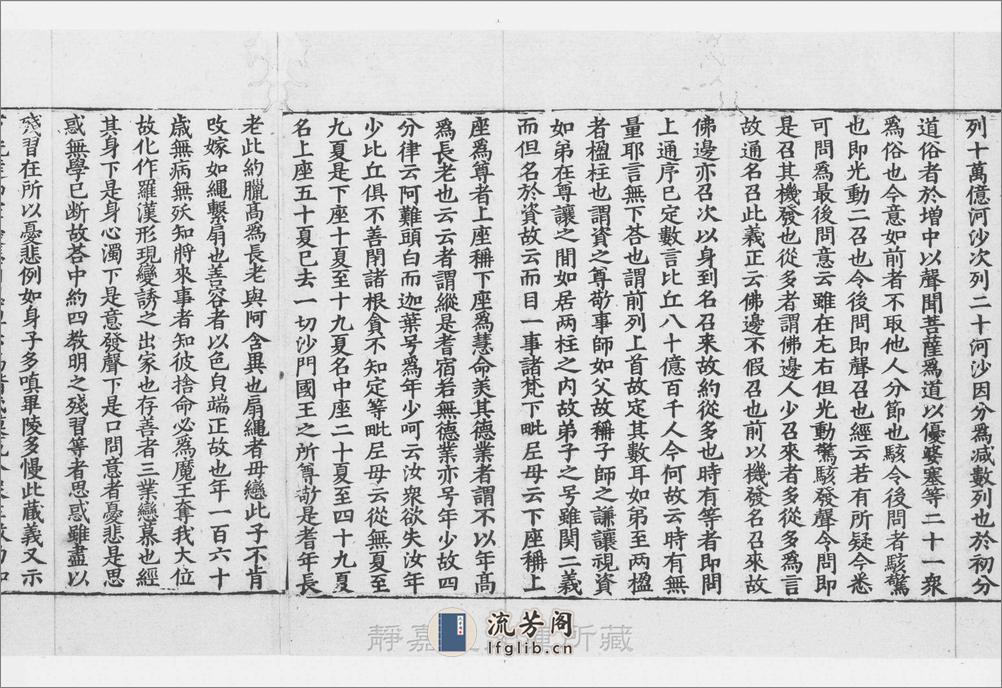 列十萬億河沙次列二十河沙因分爲減數列也於初分
道俗者於增中以聲聞菩薩爲道以優婆塞等二十一衆
爲俗也今意如前者不取他人分節也駭令後問者駭驚
也即光動二召也令後問即聲召也經云若有所疑今悉
可問爲最後問意云雖在左右但光動驚駭發聲令問即
是召其機發也從多者謂佛邊人少召來者多從多爲言
故通名召此義正云佛邊不假召也前以機發名召來故
佛邊亦召次以身到名召來故約從多也時有等者即問
上通序已定數言比丘八十億百千人今何故云時有無
量耶言無下荅也謂前列上首故定其數耳如第至兩楹
者楹柱也謂資之尊敬事師如父故稱子師之謙讓視資
如弟在尊讓之間如居兩柱之内故弟子之号雖関二義
而但名於資故云而目一事諸梵下毗尼母云下座稱上
座爲尊者上座稱下座爲慧命美其德業者謂不以年高
爲長老也云云者謂縱是耆宿若無德業亦号年少故四
分律云阿難頭白而迦葉号爲年少呵云汝衆欲失汝年
少比丘俱不善閇諸根貪不知定等毗尼母云從無夏至
九夏是下座十夏至十九夏名中座二十夏至四十九夏
名上座五十夏已去一切沙門國王之所尊敬是耆年長
老此約臘高爲長老與阿含異也扇繩者母戀此子不肯
改嫁如繩繫扇也善容者以色皃端正故也年一百六十
歲無病無夭知將來事者知彼捨命必爲魔王奪我大位
故化作羅漢形現變誘之出家也存善者三業戀慕也經
其身下是身心濁下是意發聲下是口問意者憂悲是思
惑無學已断故荅中約四教明之殘習等者思惑雖盡以
殘習在所以憂悲例如身子多嗔畢陵多慢此藏義又示
靜嘉
所藏
流芳阁
lfglib.cn